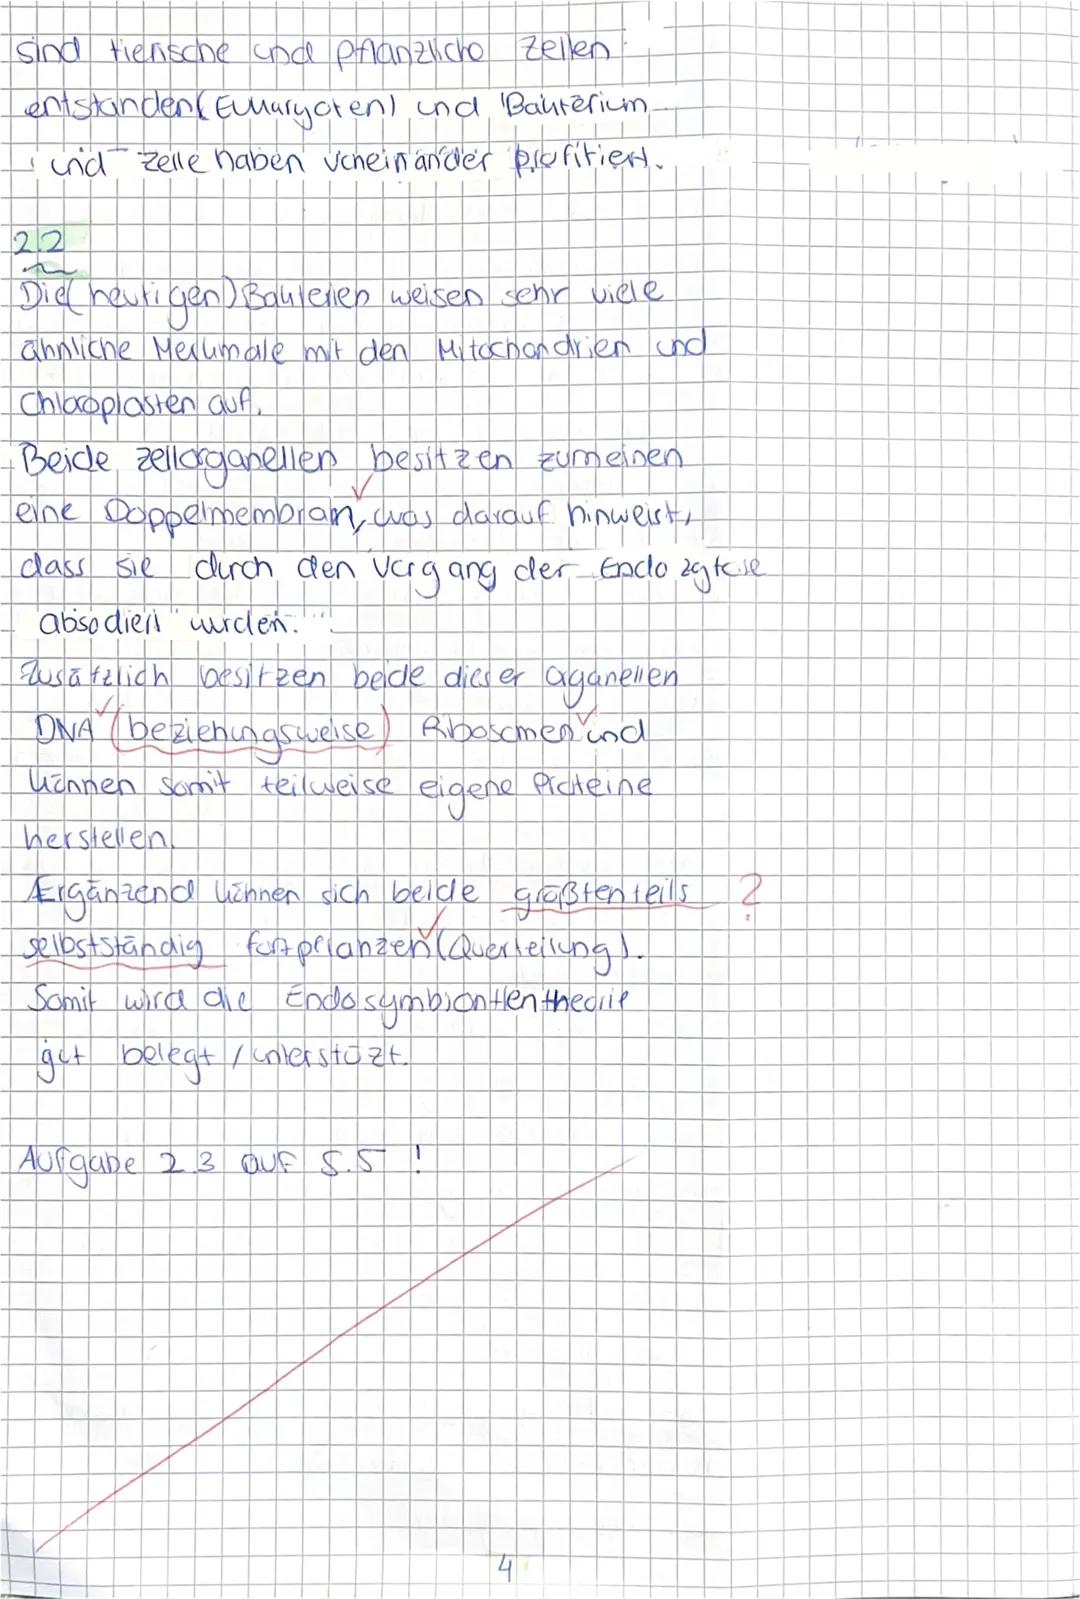 sind tierische und pflanzliche Zellen
entstanden (Eukaryoten) und Bakterium
und Zelle haben voneinander profitiert.
2.2
Die (heutigen) Bakterien weisen sehr viele
ähnliche Merkmale mit den Mitochondrien und
Chloroplasten auf.
Beide zellorganellen besitzen zumeinen
eine Doppelmembran, was darauf hinweist,
dass sie durch den Vorgang der Endozytose
absodiert wurden.
Zusätzlich besitzen beide dieser Organellen
DNA (beziehungsweise) Ribosomen und
können somit teilweise eigene Proteine
herstellen.
Ergänzend können sich beide größtenteils ?
selbstständig fortpflanzen (Querteilung).
Somit wird die Endosymbiontentheorie
gut belegt / unterstüzt.
Aufgabe 2.3 auf S.5 !
4